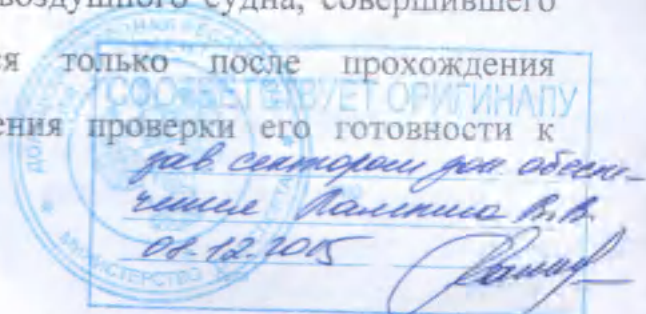 воздушного судна, совершившего
ся только после прохождения
СООТВЕТСТВУЕТ ОРИГИНАЛУ
ения проверки его готовности к
зав. сектором док. обеспе-
чения В.В.
08.12.2015
МИНИСТЕРСТВО